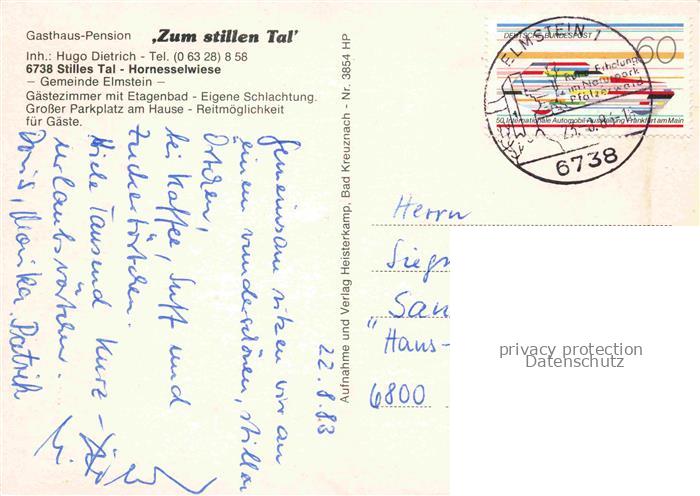 Gasthaus-Pension „Zum stillen Tal'
Inh.: Hugo Dietrich - Tel. (0 63 28) 8 58
6738 Stilles Tal - Hornesselwiese
– Gemeinde Elmstein –
Gästezimmer mit Etagenbad - Eigene Schlachtung.
Großer Parkplatz am Hause - Reitmöglichkeit
für Gäste.
22.8.83
Gemeinsam sitzen wir an
einem wunderschönen, stillen
Örtchen,
bei Kaffee, Saft und
Zuckertörtchen.
Viele Tausend Kurz-
urlaubswörtchen.
Doris, Monika, Patrik
Aufnahme und Verlag Heisterkamp, Bad Kreuznach - Nr. 3854 HP
DEUTSCHE BUNDESPOST
60
50. Internationale Automobil-Ausstellung Frankfurt am Main
ELMSTEIN 1
Ruhe Erholung
im Naturpark
Pfälzerwald
6738
Herrn
Sieg
"San
Hans-
6800
privacy protection
Datenschutz